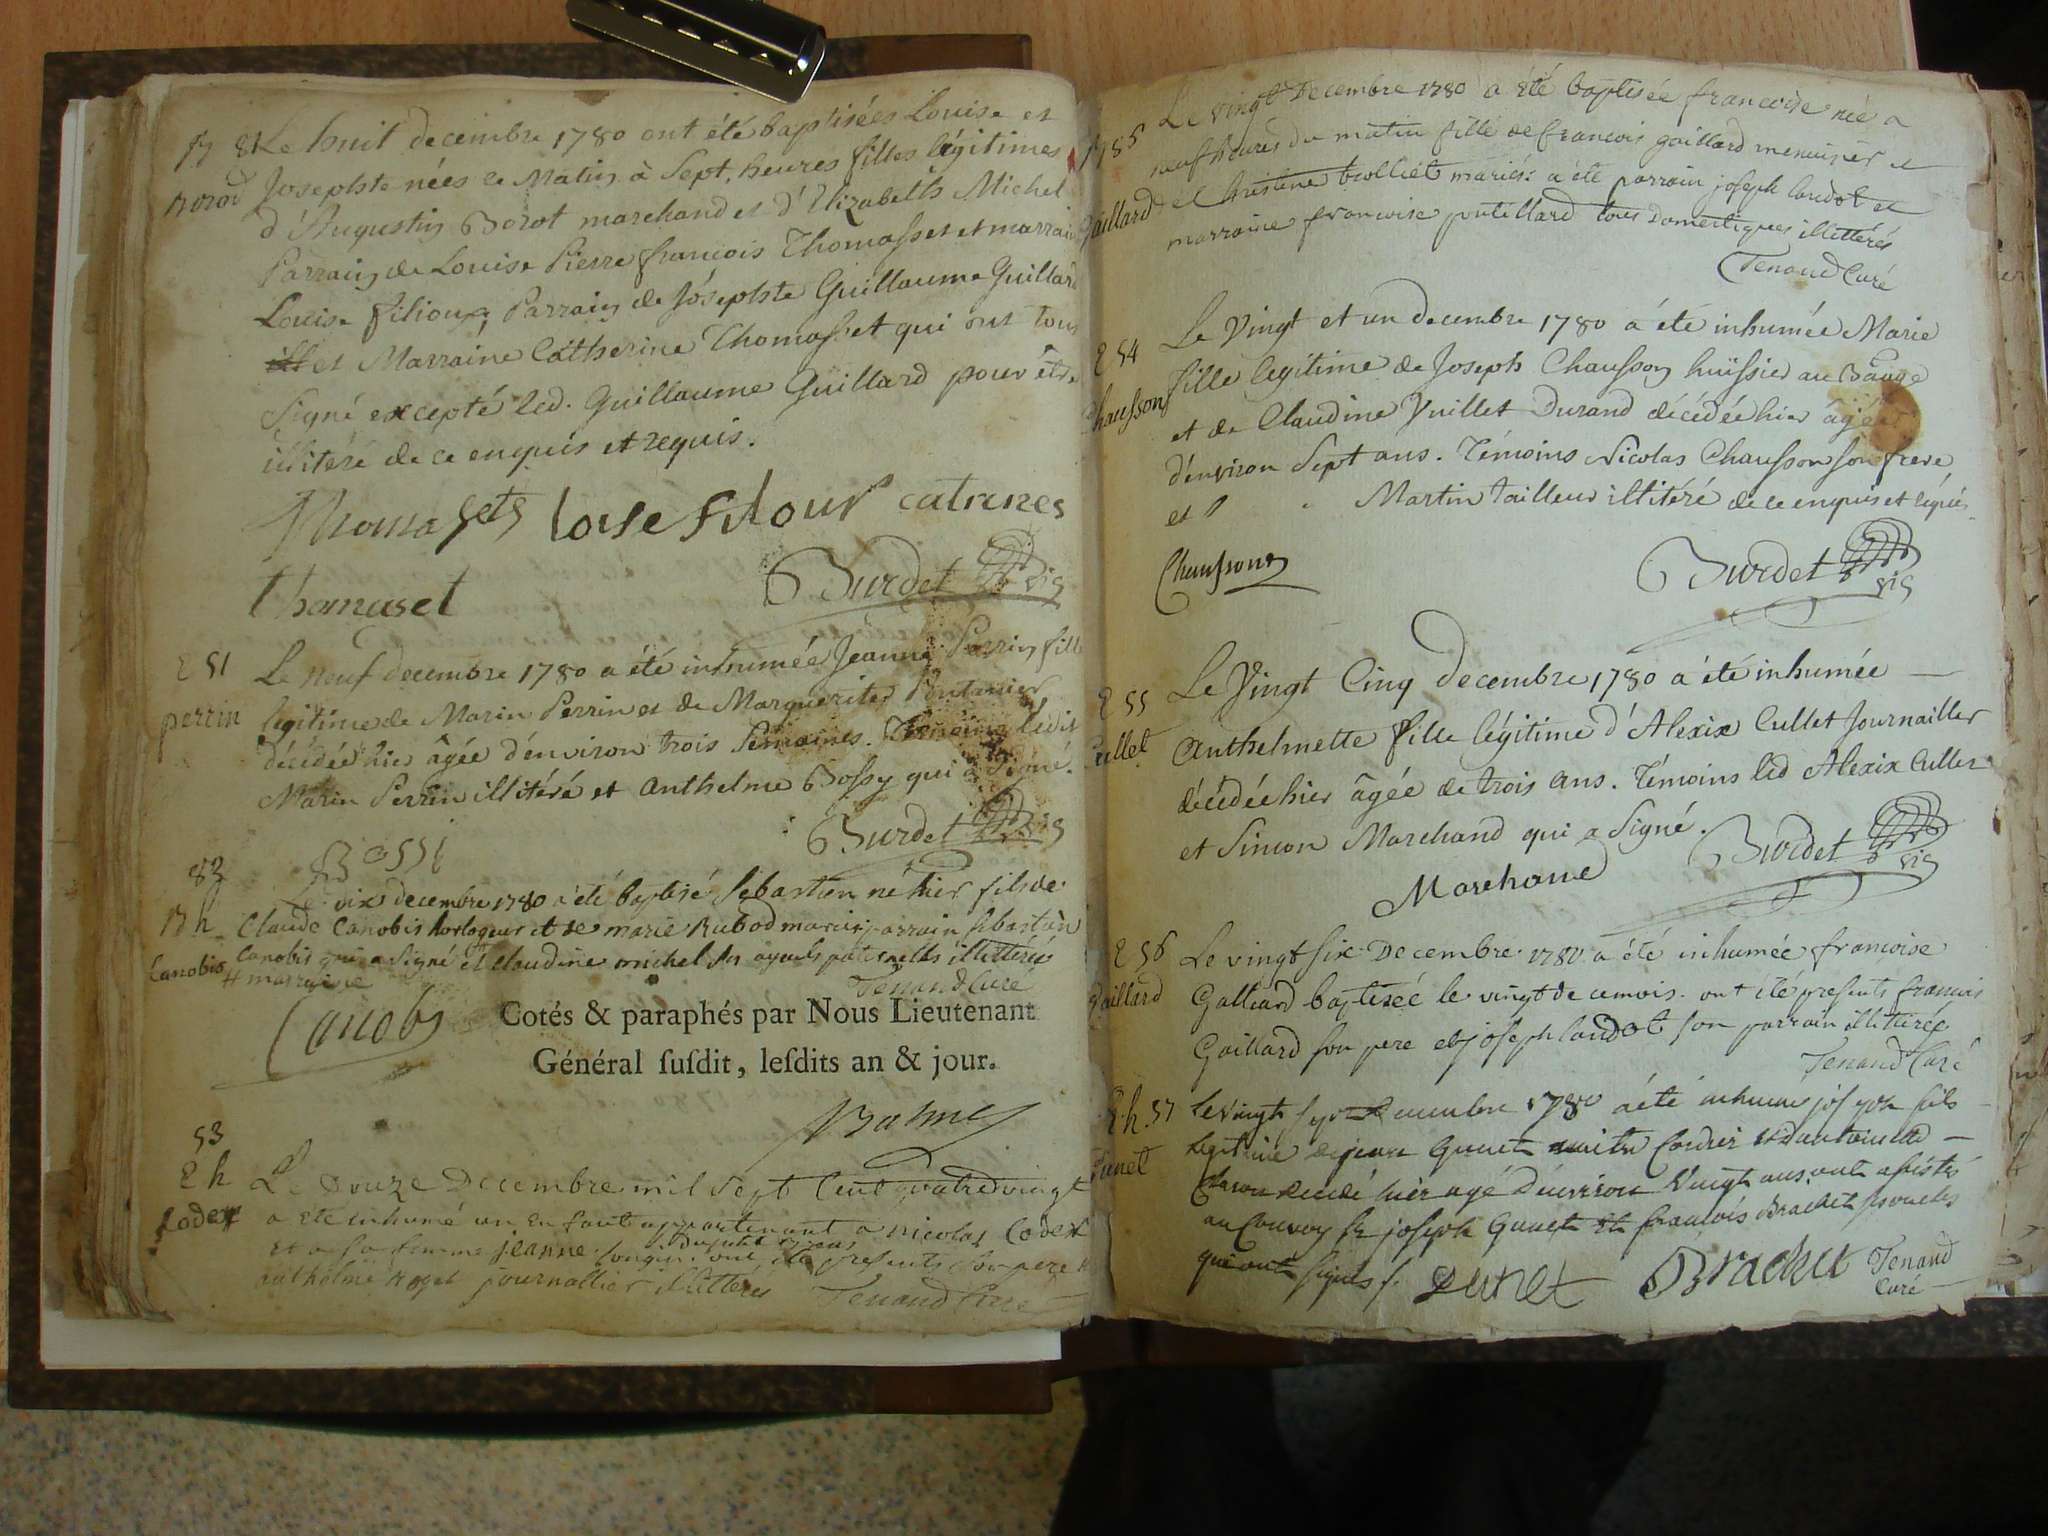 B 81 Le huit decembre 1780 ont été baptisées Louise et
Borod Josephte nées le Matin à Sept heures filles légitimes
d'Augustin Borot marchand et d'Elizabeth Michel
Parrain de Louise Pierre françois Thomasset et marraine
Louise filioux, Parrain de Josephte Guillaume Guillard
et Marraine Catherine Thomasset qui ont tous
Signé excepté led. Guillaume Guillard pour être
illitéré de ce enquis et requis.
Thomasets loise filour catrines
thomaset Burdet vic
E 51 Le neuf decembre 1780 a été inhumée Jeanne Perrin fille
perrin légitime de Marin Perrin et de Marguerite
décédée hier âgée d'environ trois Semaines. Témoins ledit
Marin Perrin illitéré et Anthelme Bossy qui a Signé.
Burdet vic
Bossi
82 Le dix decembre 1780 a été baptisé Sébastien né hier fils de
B h Claude Canobis horlogeur et de marie Rubod mariés parrain sebastien
Canobis Canobis qui a signé et Claudine michel ses ayeuls paternels illittérée
# marraine Tenand Curé
Canobis
Cotés & paraphés par Nous Lieutenant
Général susdit, lesdits an & jour.
53
E h Le Douze Decembre mil Sept Cent quatre vingt
Codex a été inhumé un Enfant appartenant a nicolas Codex
et a sa femme jeanne ont été présents son pere et
anthelme journallier illitteres Tenand Curé
B 85 Le vingt Decembre 1780 a été baptisée francoise née a
neuf heures du matin fille de francois gaillard menuisier et
Gaillard de Christine trolliet mariés: a été parrain joseph landot et
marraine francoise poutillard tous domestiques illittérés
Tenand Curé
E 54 Le Vingt et un decembre 1780 a été inhumée Marie
Chausson fille legitime de Joseph Chausson huissier au Bauge
et de Claudine Vuillet Durand décédée hier âgée
d'environ Sept ans. Témoins Nicolas Chausson son frere
et Martin tailleur illitéré de ce enquis et requis
Chaussone Burdet vic
E 55 Le Vingt Cinq decembre 1780 a été inhumée
Cullet Anthelmette fille légitime d'Alexix Cullet Journailler
décédée hier âgée de trois ans. Témoins led Alexix Cullet
et Simon Marchand qui a Signé.
Marchand Burdet vic
E 56 Le vingt six Decembre 1780 a été inhumée francoise
Gaillard Galliard baptisée le vingt de ce mois. ont été presents francois
Gaillard son pere et joseph landot son parrain illittéré
Tenand Curé
E.h. 57 Le vingt sept decembre 1780 a été inhumé joseph fils
Gunet legitime de jean Gunet maitre Cordier et d'antoinette
décédé hier agé d'environ Vingt ans, ont assisté
au Convoy sr joseph Gunet et francois Brachet
qui ont signés Gunet Brachet Tenand
Curé